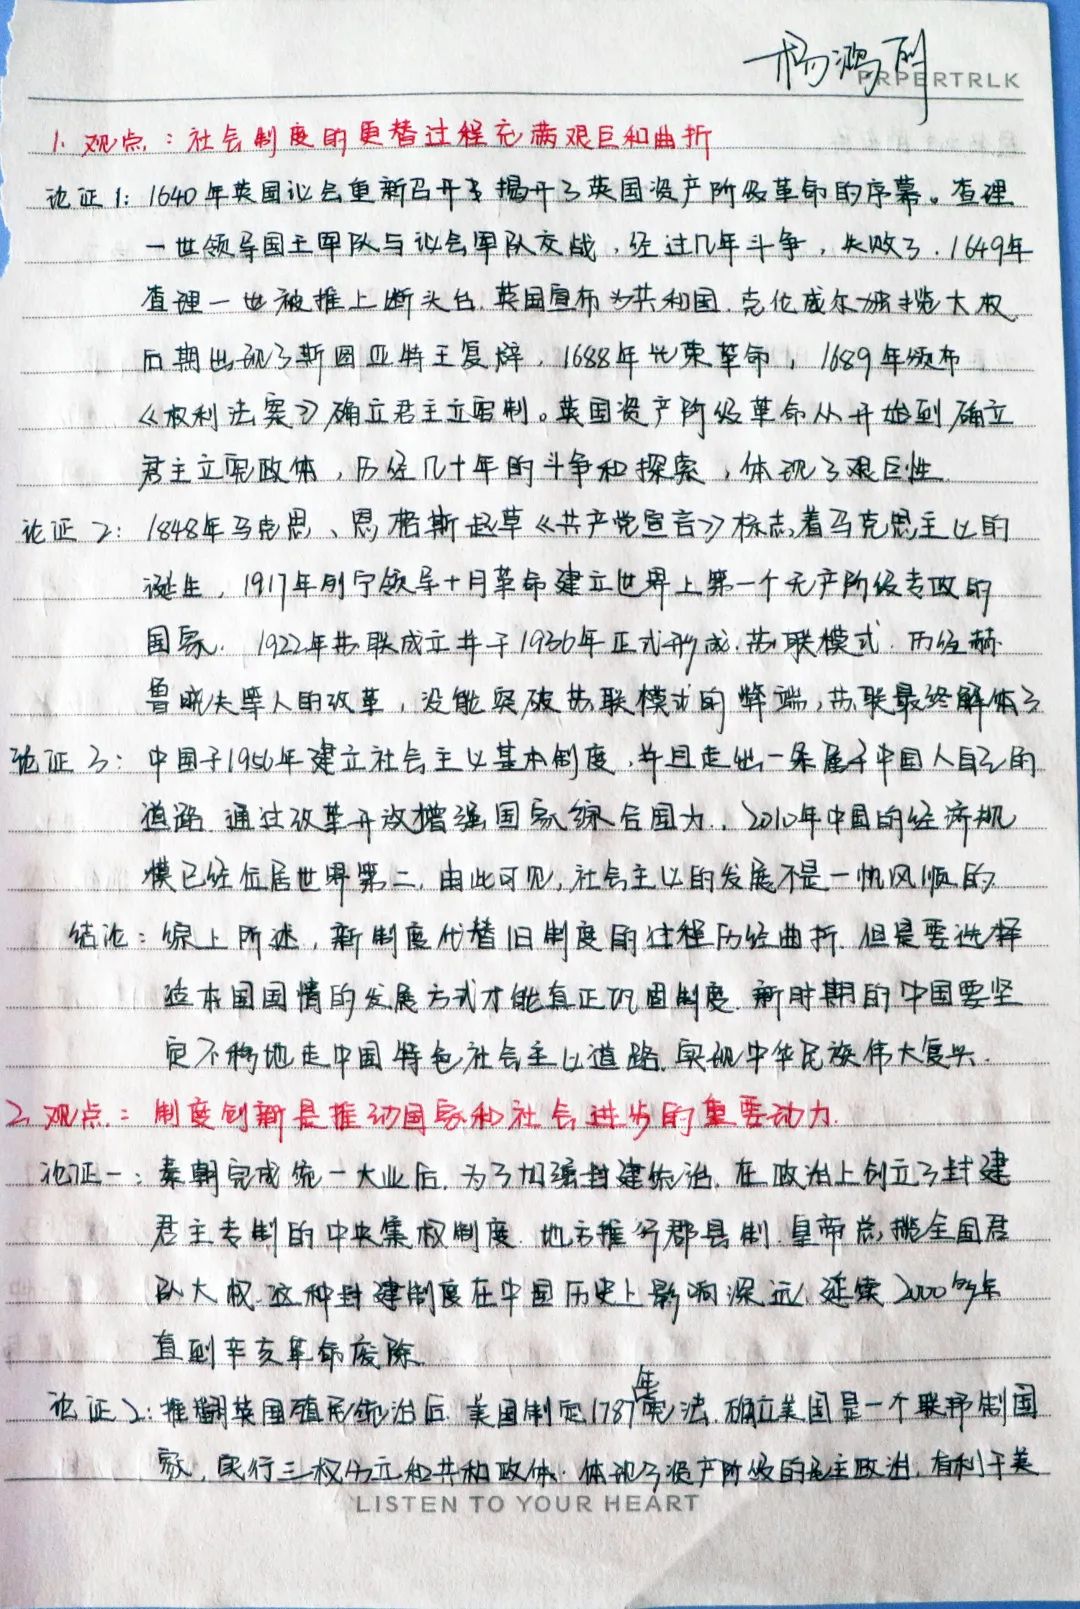 杨鸿
PRPERTRLK
1. 观点：社会制度的更替过程充满艰巨和曲折
论证1：1640年英国议会重新召开揭开了英国资产阶级革命的序幕。查理
一世领导国王军队与议会军队交战，经过几年斗争，失败了．1649年
查理一世被推上断头台．英国宣布为共和国．克伦威尔独揽大权．
后期出现了斯图亚特王复辟，1688年光荣革命，1689年颁布
《权利法案》确立君主立宪制。英国资产阶级革命从开始到确立
君主立宪政体，历经几十年的斗争和探索，体现了艰巨性．
论证2：1848年马克思、恩格斯起草《共产党宣言》标志着马克思主义的
诞生，1917年列宁领导十月革命建立世界上第一个无产阶级专政的
国家．1922年苏联成立并于1936年正式形成．苏联模式．历经赫
鲁晓夫等人的改革，没能突破苏联模式的弊端，苏联最终解体了
论证3：中国于1956年建立社会主义基本制度，并且走出一条属于中国人自己的
道路．通过改革开放增强国家综合国力．，2010年中国的经济规
模已经位居世界第二．由此可见，社会主义的发展不是一帆风顺的．
结论：综上所述，新制度代替旧制度的过程历经曲折．但是要选择
适本国国情的发展方式才能真正巩固制度．新时期的中国要坚
定不移地走中国特色社会主义道路．实现中华民族伟大复兴．
2. 观点：制度创新是推动国家和社会进步的重要动力．
论证一：秦朝完成统一大业后，为了加强封建统治，在政治上创立了封建
君主专制的中央集权制度．地方推行郡县制．皇帝总揽全国君
队大权．这种封建制度在中国历史上影响深远，延续2000多年
直到辛亥革命废除．
论证2：推翻英国殖民统治后．美国制定1787年宪法．确立美国是一个联邦制国
家，实行三权分立和共和政体．体现了资产阶级的民主政治，有利于美
LISTEN TO YOUR HEART